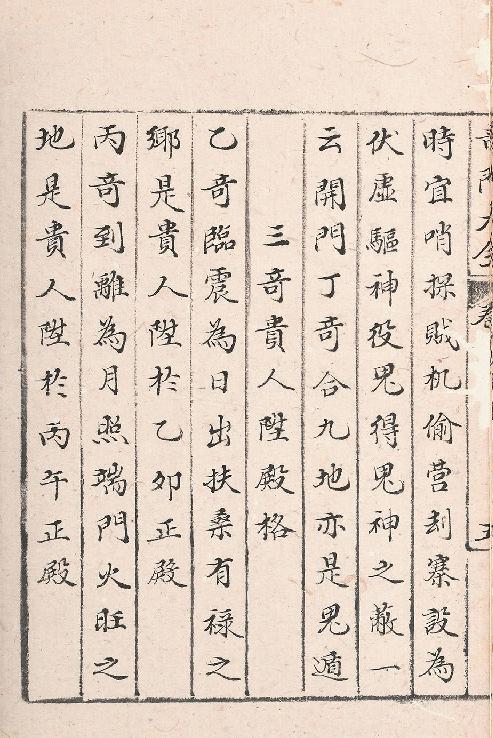 時宜哨探贼机偷营刦寨設為
伏虛驅神役鬼得鬼神之蔽一
云開門丁奇合九地亦是鬼遁
三奇貴人陞殿格
乙奇臨震為日出扶桑有祿之
鄉是貴人陞於乙卯正殿
丙奇到離為月照端門火旺之
地是貴人陞於丙午正殿